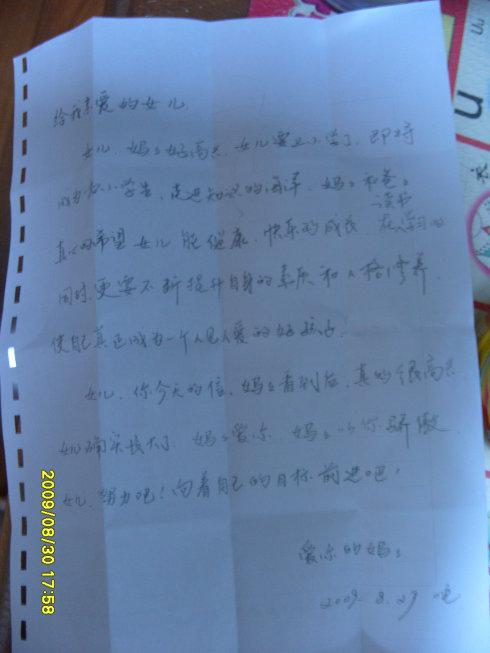 给我亲爱的女儿
女儿、妈妈好高兴、女儿要上小学了、即将
成为一名小学生、走进知识的海洋、妈妈和爸爸
真心的希望女儿能健康、快乐的成长、在读书学习的
同时,更要不断提升自身的素质和人格修养、
使自己真正成为一个人见人爱的好孩子。
女儿、你今天的信、妈妈看到后、真的很高兴、
女儿确实长大了、妈妈爱你、妈妈以你骄傲、
女儿、努力吧!向着自己的目标前进吧!
爱你的妈妈
2009.8.29
2009/08/30 17:58